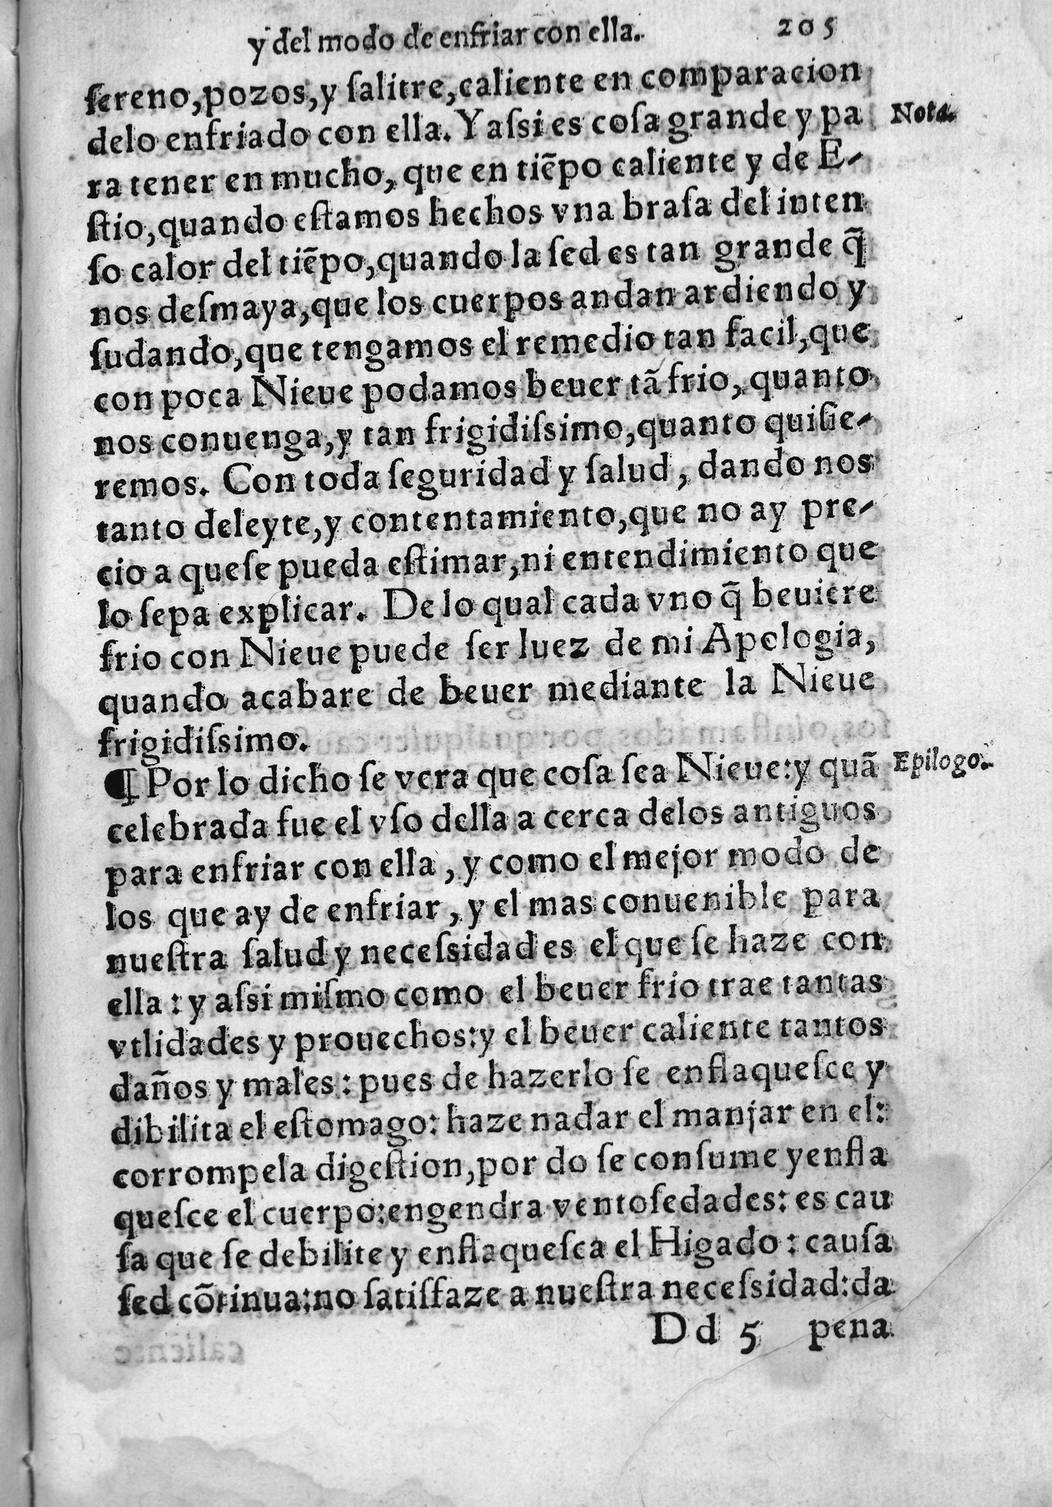 y del modo de enfriar con ella. 205
ſereno,pozos,y ſalitre,caliente en comparacion
delo enfriado con ella. Y aſsi es coſa grande y pa Nota.
ra tener en mucho, que en tiẽpo caliente y de E-
ſtio,quando eſtamos hechos vna braſa del inten
ſo calor del tiẽpo,quando la ſed es tan grande q̃
nos deſmaya,que los cuerpos andan ardiendo y
ſudando,que tengamos el remedio tan facil,que
con poca Nieue podamos beuer tã frio, quanto
nos conuenga,y tan frigidiſsimo,quanto quiſie-
remos. Con toda ſeguridad y ſalud, dando nos
tanto deleyte,y contentamiento,que no ay pre-
cio a queſe pueda eſtimar,ni entendimiento que
lo ſepa explicar. De lo qual cada vno q̃ beuiere
frio con Nieue puede ſer Iuez de mi Apologia,
quando acabare de beuer mediante la Nieue
frigidiſsimo.
¶ Por lo dicho ſe vera que coſa ſea Nieue:y quã Epilogo.
celebrada fue el vſo della a cerca delos antiguos
para enfriar con ella, y como el mejor modo de
los que ay de enfriar, y el mas conuenible para
nueſtra ſalud y neceſsidades el que ſe haze con
ella: y aſsi miſmo como el beuer frio trae tantas
vtlidades y prouechos:y el beuer caliente tantos
daños y males: pues de hazerlo ſe enflaqueſce y
dibilita el eſtomago: haze nadar el manjar en el:
corrompela digeſtion,por do ſe conſume yenfla
queſce el cuerpo:engendra ventoſedades: es cau
ſa que ſe debilite y enflaqueſca el Higado: cauſa
ſed cõtinua:no ſatisfaze a nueſtra neceſsidad:da
Dd 5 pena